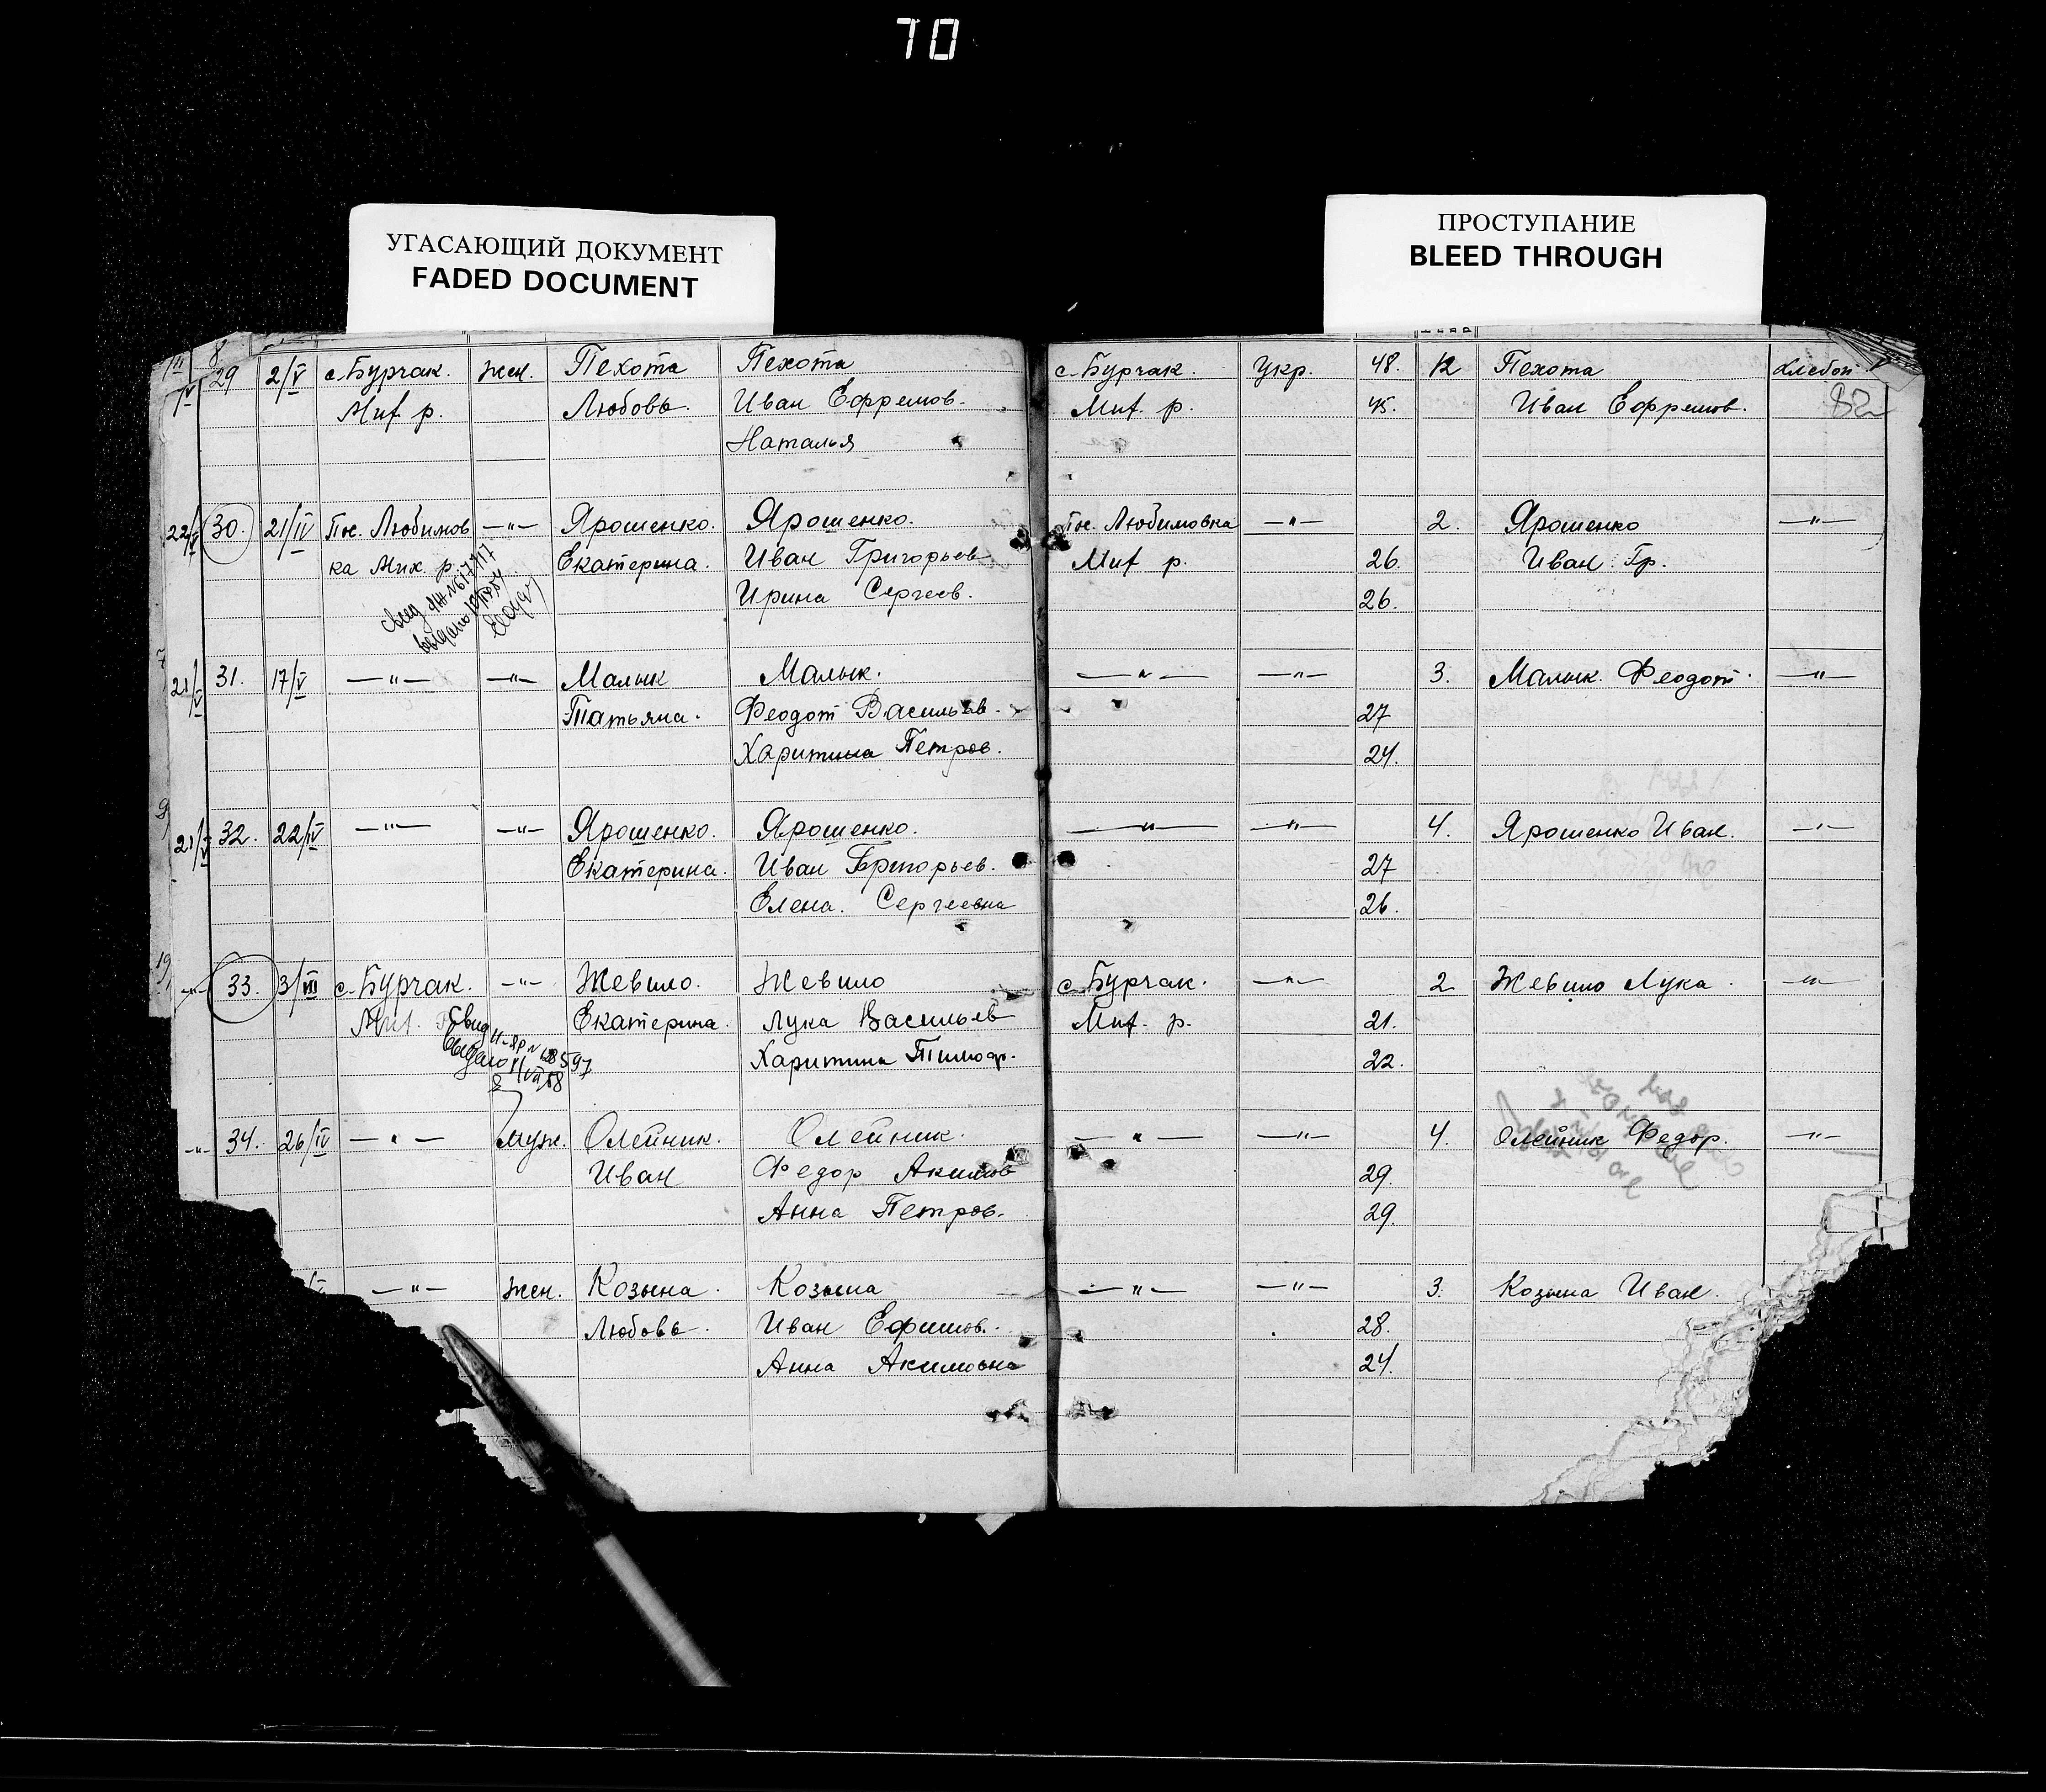 70
УГАСАЮЩИЙ ДОКУМЕНТ
FADED DOCUMENT
ПРОСТУПАНИЕ
BLEED THROUGH
29 2/V с. Бурчак. жен. Пехота Пехота с. Бурчак. Укр. 48. 12 Пехота хлебоп.
Мих. р. Любовь. Иван Ефремов. Мих. р. 45. Иван Ефремов. 82
Наталья
22/V 30. 21/IV Пос. Любимов —"— Ярошенко. Ярошенко. Пос. Любимовка —"— 2. Ярошенко —"—
ка Мих. р. Екатерина. Иван Григорьев Мих р. 26. Иван Гр.
Ирина Сергеев. 26.
21/V 31. 17/V —"— —"— Малык Малык. —"— —"— 3. Малык. Феодот. —"—
Татьяна. Феодот Васильев. 27
Харитина Петров. 24.
21/V 32. 22/IV —"— —"— Ярошенко. Ярошенко. —"— —"— 4. Ярошенко Иван. —"—
Екатерина. Иван Григорьев. 27
Елена. Сергеевна 26.
—"— 33. с. Бурчак. —"— Жевило. Жевило с. Бурчак. —"— 2 Жевило Лука. —"—
Мих. Екатерина. Лука Васильев Мих. р. 21.
Харитина Тимоф. 22.
—"— 34. 26/IV —"— муж. Олейник. Олейник. —"— —"— 4. Олейник Федор. —"—
Иван Федор Акимов 29.
Анна Петров. 29.
—"— жен. Козына. Козына —"— —"— 3. Козына Иван.
Любовь. Иван Ефимов. 28.
Анна Акимовна 24.